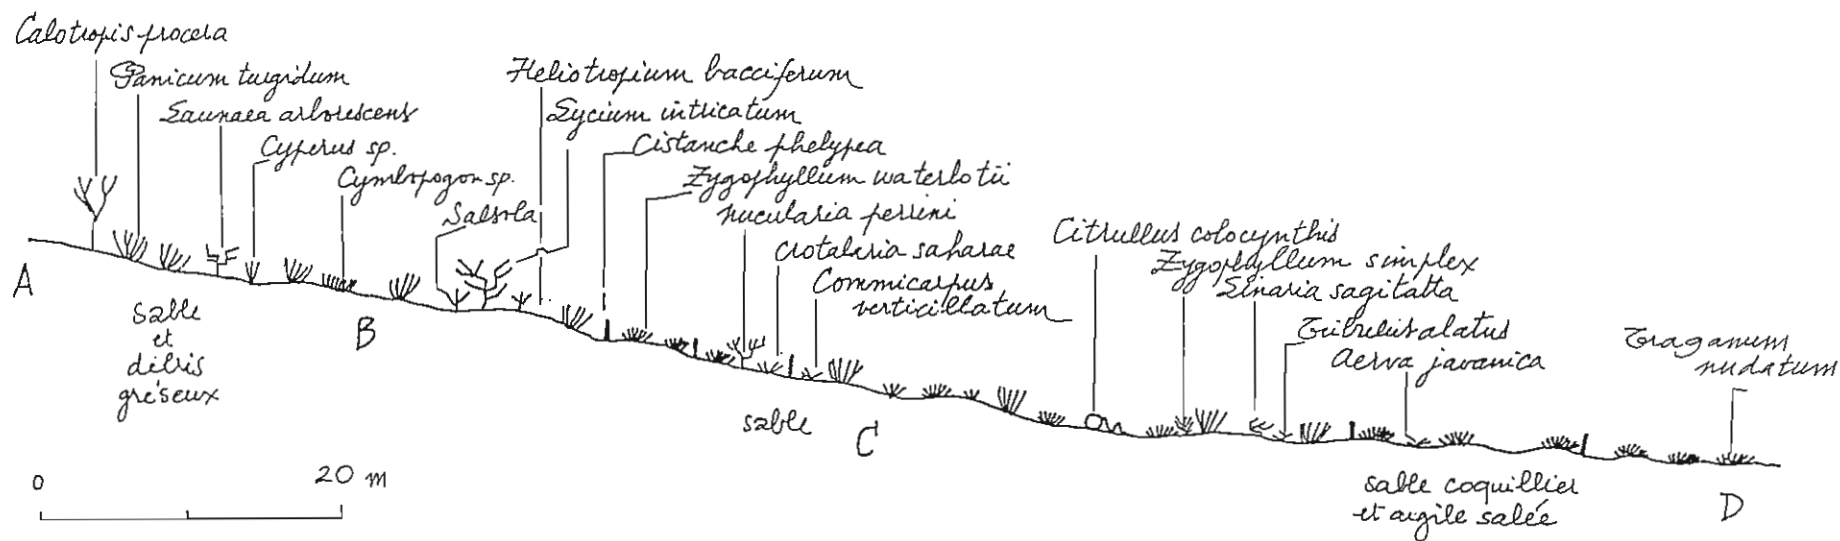 Calotropis procera
Panicum turgidum
Launaea arborescens
Cyperus sp.
Cymbopogon sp.
Salsola
Heliotropium bacciferum
Lycium intricatum
Cistanche phelypea
Zygophyllum waterlotii
Nucularia perrini
Crotalaria saharae
Commicarpus
verticillatum
Citrullus colocynthis
Zygophyllum simplex
Linaria sagitatta
Tribulus alatus
Aerva javanica
Traganum
nudatum
A
sable
et
débris
gréseux
B
sable
C
sable coquillier
et argile salée
D
0
20 m